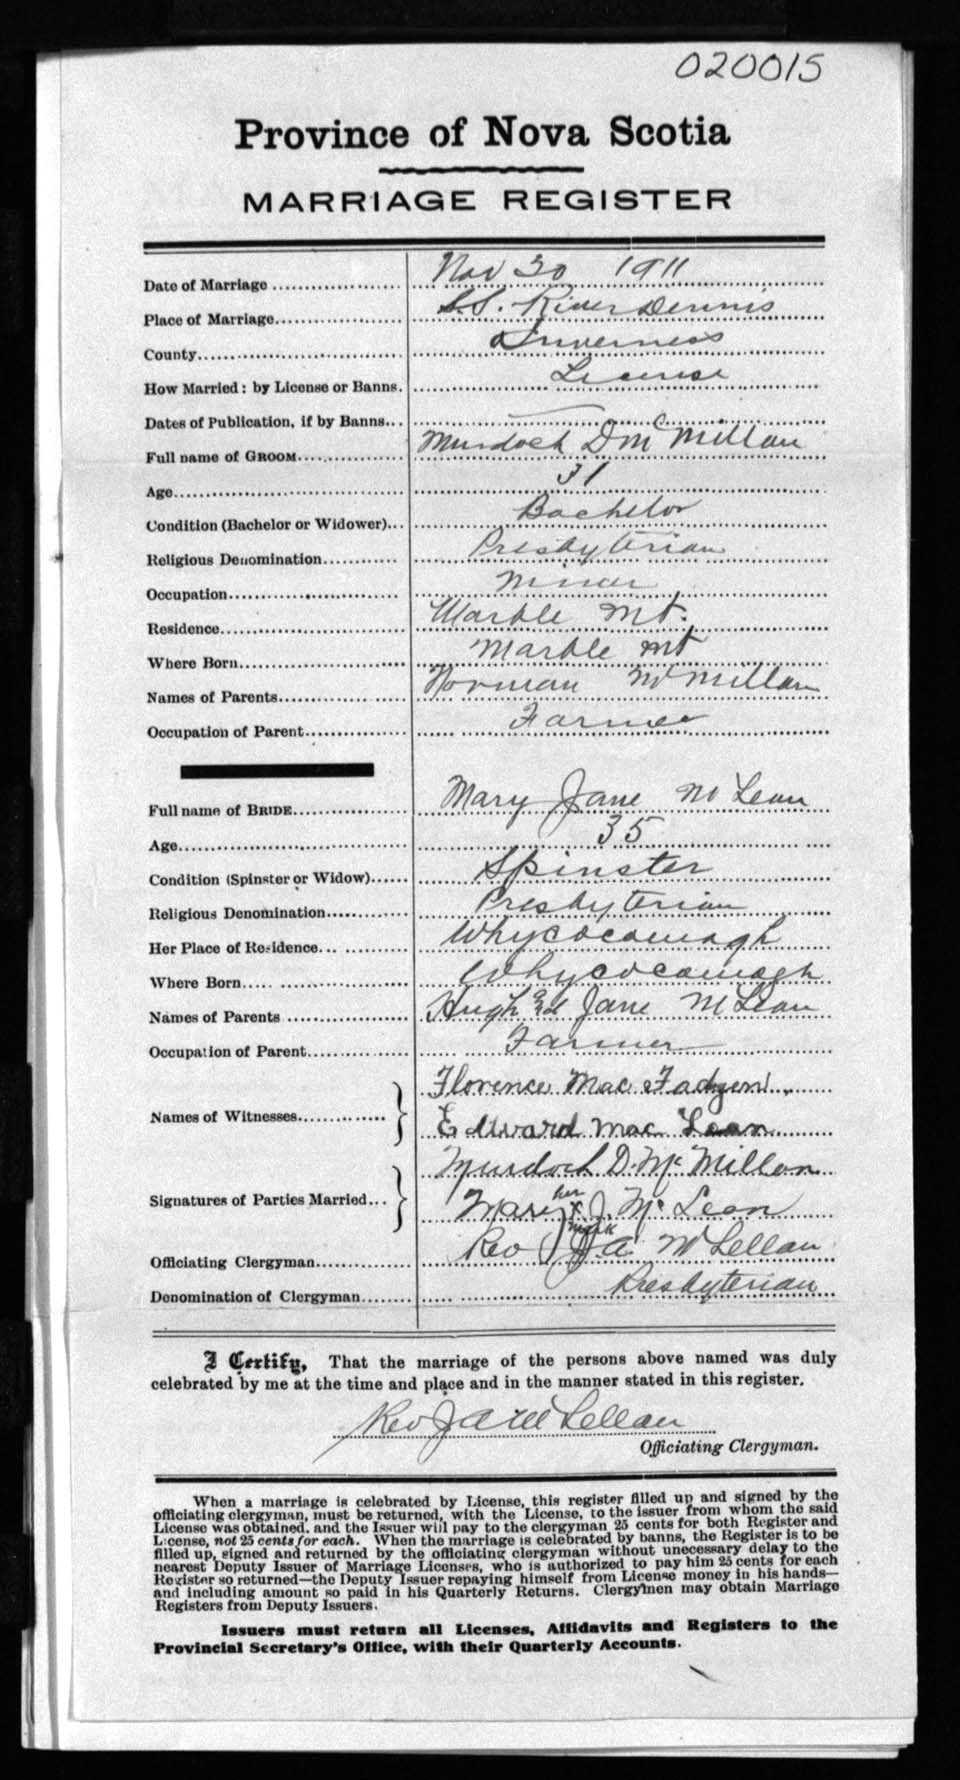 020015
Province of Nova Scotia
MARRIAGE REGISTER
Date of Marriage Nov 30 1911
Place of Marriage S.S. River Dennis
County Inverness
How Married: by License or Banns. License
Dates of Publication, if by Banns... —
Full name of GROOM Murdoch D McMillan
Age 31
Condition (Bachelor or Widower)... Bachelor
Religious Denomination Presbyterian
Occupation Miner
Residence Marble Mt.
Where Born Marble Mt
Names of Parents Norman McMillan
Occupation of Parent Farmer
Full name of BRIDE Mary Jane McLean
Age 35
Condition (Spinster or Widow) Spinster
Religious Denomination Presbyterian
Her Place of Residence Whycocomagh
Where Born Whycocomagh
Names of Parents Hugh & Jane McLean
Occupation of Parent Farmer
Names of Witnesses } Florence Mac Fadyen
Edward Mac Lean
Signatures of Parties Married... } Murdoch D. McMillan
Mary her x mark J. McLean
Officiating Clergyman Rev J. A. McLellan
Denomination of Clergyman Presbyterian
I Certify, That the marriage of the persons above named was duly
celebrated by me at the time and place and in the manner stated in this register.
Rev J A McLellan
Officiating Clergyman.
When a marriage is celebrated by License, this register filled up and signed by the
officiating clergyman, must be returned, with the License, to the issuer from whom the said
License was obtained, and the Issuer will pay to the clergyman 25 cents for both Register and
License, not 25 cents for each. When the marriage is celebrated by banns, the Register is to be
filled up, signed and returned by the officiating clergyman without unecessary delay to the
nearest Deputy Issuer of Marriage Licenses, who is authorized to pay him 25 cents for each
Register so returned—the Deputy Issuer repaying himself from License money in his hands—
and including amount so paid in his Quarterly Returns. Clergymen may obtain Marriage
Registers from Deputy Issuers.
Issuers must return all Licenses, Affidavits and Registers to the
Provincial Secretary's Office, with their Quarterly Accounts.